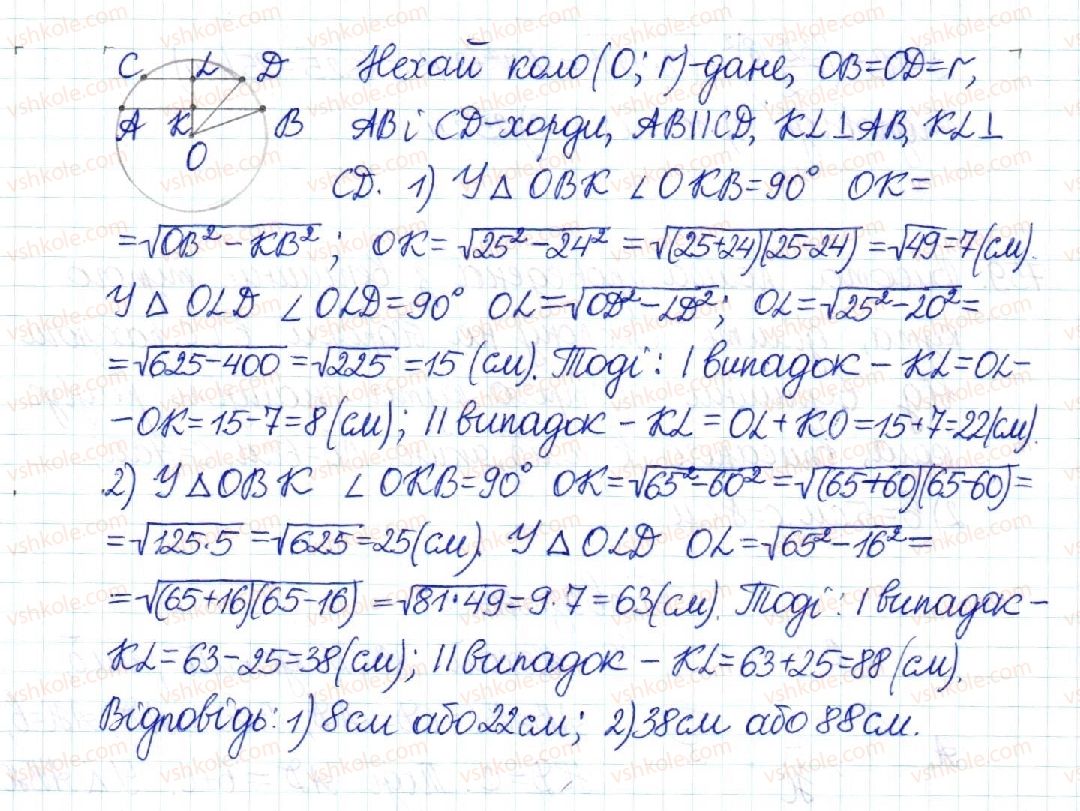 C L D Нехай коло (O; r)-дане, OB=OD=r,
A K B AB і CD-хорди, AB||CD, KL⊥AB, KL⊥
O
CD. 1) У △ OBK ∠OKB=90° OK=
=√OB²-KB²; OK=√25²-24²=√(25+24)(25-24)=√49=7(см).
У △ OLD ∠OLD=90° OL=√OD²-LD²; OL=√25²-20²=
=√625-400=√225=15(см). Тоді: I випадок - KL=OL-
-OK=15-7=8(см); II випадок - KL=OL+KO=15+7=22(см).
2) У △OBK ∠OKB=90° OK=√65²-60²=√(65+60)(65-60)=
=√125·5=√625=25(см). У △OLD OL=√65²-16²=
=√(65+16)(65-16)=√81·49=9·7=63(см). Тоді: I випадок-
KL=63-25=38(см); II випадок - KL=63+25=88(см).
Відповідь: 1) 8см або 22см; 2) 38см або 88см.